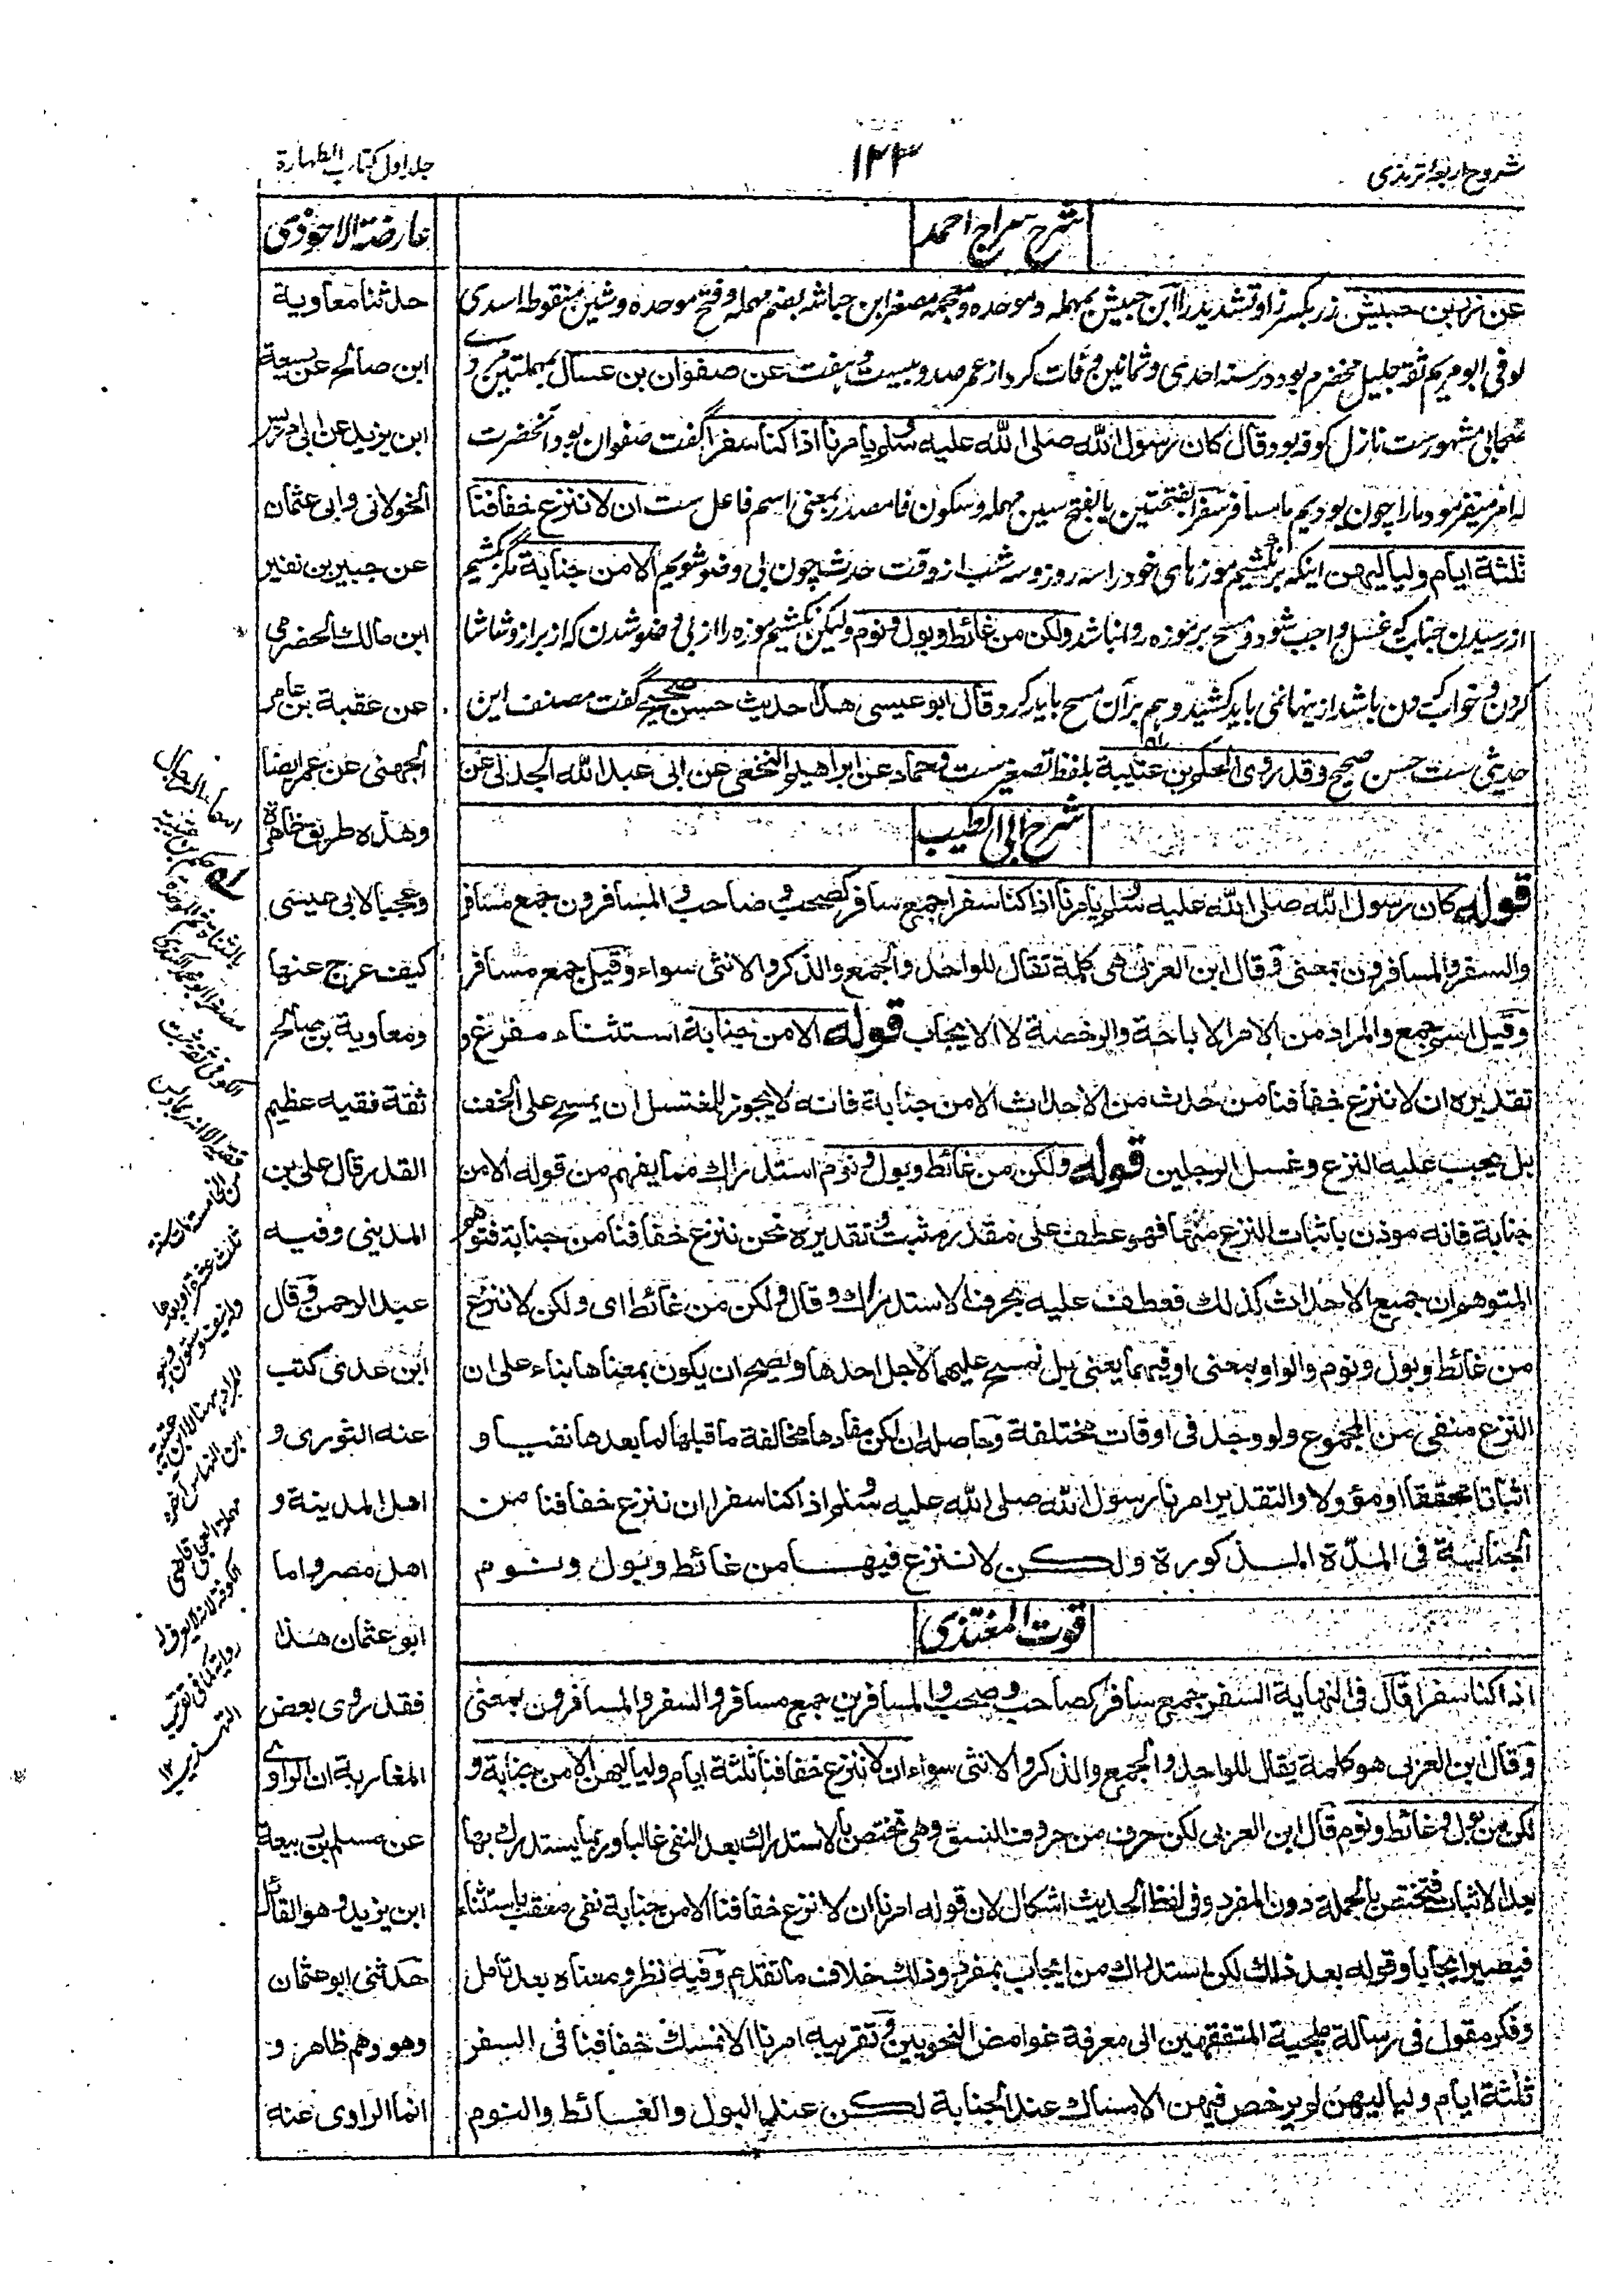 شروح اربعہ ترمذی
۱۳۳
جلد اول کتاب الطہارة
شرح سراج احمد
عن زر بن حبیش زر بکسر زا و تشدید را ابن حبیش بمهمله و موحده و معجمه مصغر ابن حباشه بضم مهمله و فتح موحده و شین منقوطه اسدی
کوفی ابو مریم ثقه جلیل مخضرم بود در سنه احدی و ثمانین وفات کرد از عمر صد و بیست و هفت عن صفوان بن عسال بمهملتین مرادی
صحابی مشهورست نازل کوفه بود قال کان رسول الله صلی الله علیه وسلم یامرنا اذا کنا سفرا گفت صفوان بود آنحضرت
که امر میفرمود ما را چون بودیم ما مسافر سفرا بفتحتین یا بفتح سین مهمله و سکون فا مصدر بمعنی اسم فاعل ست ان لا ننزع خفافنا
ثلثة ایام ولیالیهن اینکه بر نکشیم موزهای خود را سه روز و سه شب از وقت حدث چون بی وضو شویم الا من جنابة مگر بکشیم
از رسیدن جنابت که غسل واجب شود و مسح بر موزه روا نباشد ولکن من غائط وبول ونوم ولیکن نکشیم موزه را از بی وضو شدن که از براز و شاشا
کردن و خواب کردن باشد از ینها نمی باید کشید و هم بر آن مسح باید کرد وقال ابو عیسی هذا حدیث حسن صحیح گفت مصنف این
حدیثی ست حسن صحیح وقد روی الحکم بن عتیبة بلفظ تصغیرست وحماد عن ابراهیم النخعی عن ابی عبد الله الجدلی عن
شرح ابی الطیب
قوله کان رسول الله صلی الله علیه وسلم یامرنا اذا کنا سفرا جمع سافر کصحب وصاحب والمسافرون جمع مسافر
والسفر والمسافرون بمعنی وقال ابن العربی هی کلمة تقال للواحد والجمع والذکر والانثی سواء وقیل جمع مسافر
وقیل اسم جمع والمراد من الامر الاباحة والرخصة لا الایجاب قوله الا من جنابة استثناء مفرغ و
تقدیره ان لا ننزع خفافنا من حدث من الاحداث الا من جنابة فانه لا یجوز للمغتسل ان یمسح علی الخف
بل یجب علیه النزع وغسل الرجلین قوله ولکن من غائط وبول ونوم استدراك مما یفهم من قوله الا من
جنابة فانه موذن باثبات النزع منها فهو عطف علی مقدر مثبت وتقدیره نحن ننزع خفافنا من جنابة فتوهم
المتوهم ان جمیع الاحداث کذلك فعطف علیه بحرف الاستدراك وقال ولکن من غائط ای ولکن لا ننزع
من غائط وبول ونوم والواو بمعنی او فیهما یعنی بل نمسح علیهما لاجل احدها ویصح ان یکون بمعناها بناء علی ان
النزع منفی من المجموع ولو وجد فی اوقات مختلفة وحاصله ان لکن مفادها مخالفة ما قبلها لما بعدها نفیا و
اثباتا محققا او مؤولا والتقدیر امرنا رسول الله صلی الله علیه وسلم اذا کنا سفرا ان ننزع خفافنا من
الجنابة فی المدّة المذکورة ولکن لا ننزع فیها من غائط وبول ونوم
قوت المغتذی
اذا کنا سفرا قال فی النهایة السفر جمع سافر کصاحب وصحب والمسافرین جمع مسافر والسفر والمسافرون بمعنی
وقال ابن العربی هو کلمة یقال للواحد والجمع والذکر والانثی سواء ان لا ننزع خفافنا ثلثة ایام ولیالیهن الا من جنابة و
لکن من بول وغائط ونوم قال ابن العربی لکن حرف من حروف النسق وهی تختص بالاستدراك بعد النفی غالبا وربما یستدرك بها
بعد الاثبات فتختص بالجملة دون المفرد وفی لفظ الحدیث اشکال لان قوله امرنا ان لا ننزع خفافنا الا من جنابة نفی معقب باستثناء
فیصیر ایجابا وقوله بعد ذلك لکن استدراك من ایجاب بمفرد وذلك خلاف ما تقدم وفیه نظر ومعناه بعد تامل
وفکر مقول فی رسالة ملجیة المتفقهین الی معرفة غوامض النحویین وتقریبه امرنا الا نمسك خفافنا فی السفر
ثلثة ایام ولیالیهن لم یرخص فیهن الامساك عند الجنابة لکن عند البول والغائط والنوم
عارضة الاحوذی
حدثنا معاویة
ابن صالح عن ربیعة
ابن یزید عن ابی ادریس
الخولانی وابی عثمان
عن جبیر بن نفیر
ابن مالك الحضرمی
عن عقبة بن عامر
الجهنی عن عمر ایضا
وهذه طریق ظاهرة
وعجبا لابی عیسی
کیف عرج عنها
ومعاویة بن صالح
ثقة فقیه عظیم
القدر قال علی بن
المدینی وفیه
عبد الرحمن وقال
ابن عدی کتب
عنه الثوری و
اهل المدینة و
اهل مصر واما
ابو عثمان هذا
فقد روی بعض
المغاربة ان الراوی
عن مسلم بن ربیعة
ابن یزید وهو القائل
حدثنی ابو عثمان
وهو وهم ظاهر و
انما الراوی عنه
اسماء الرجال